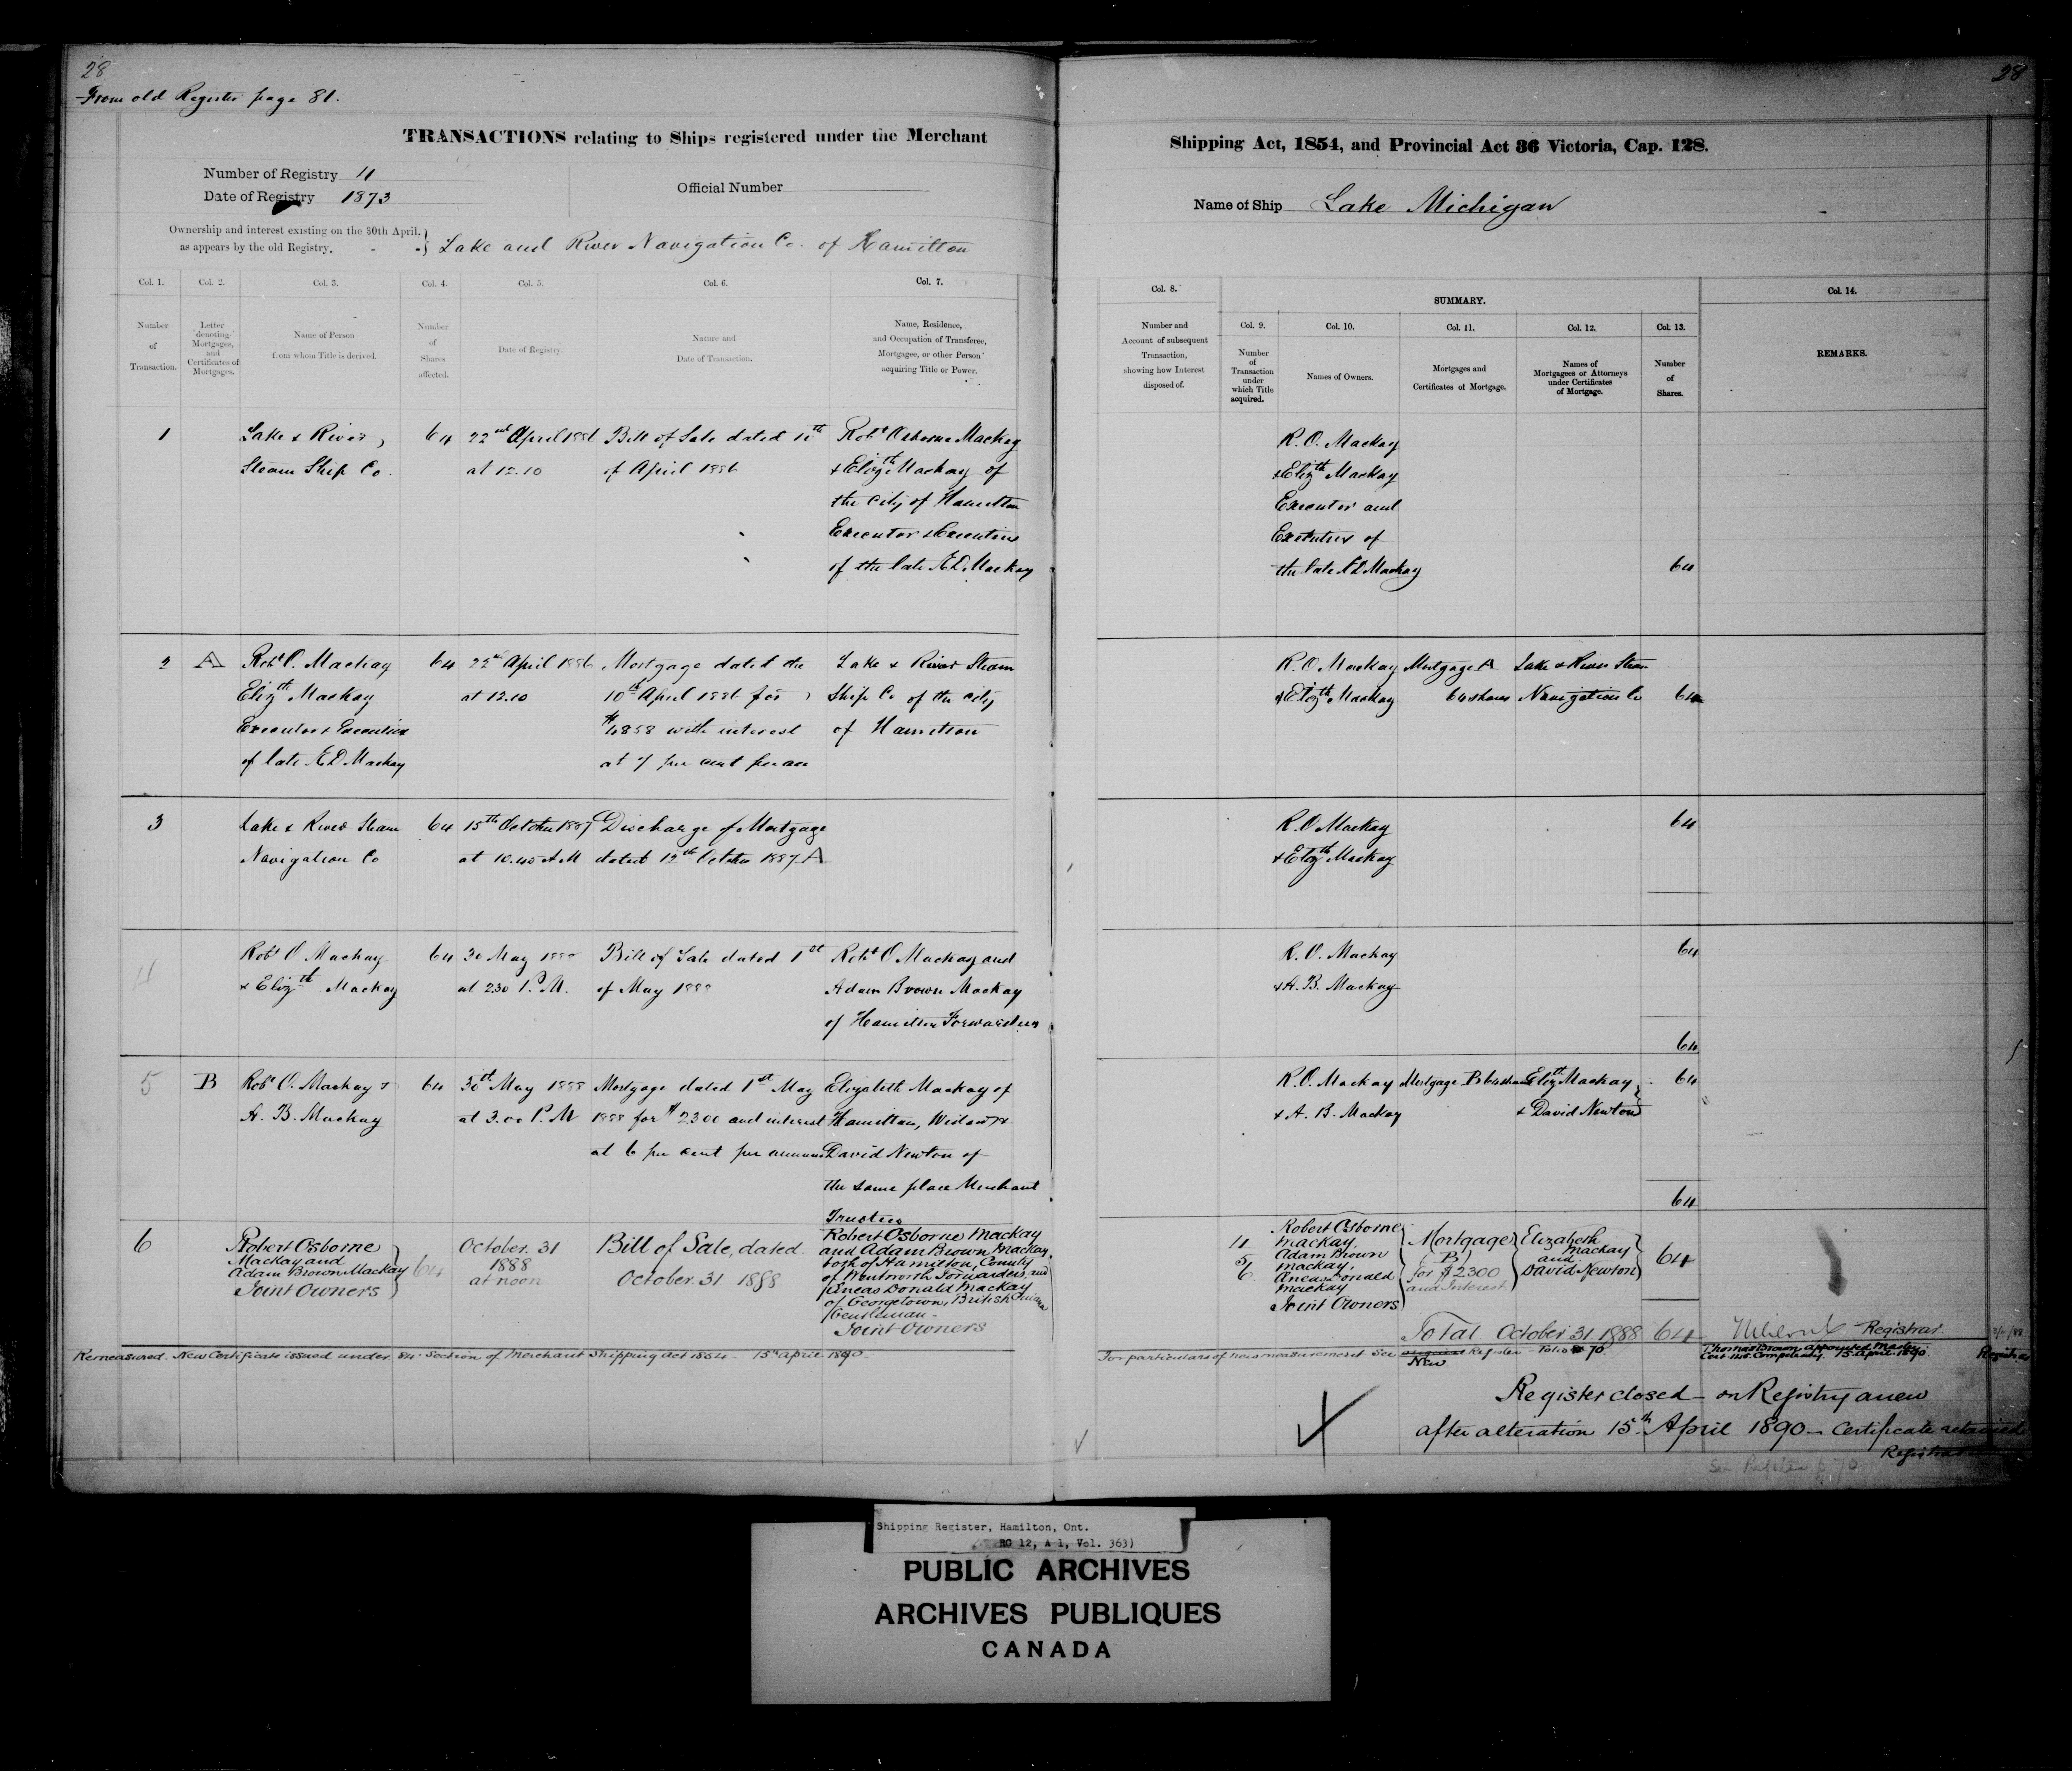 28
From old Register page 81.
28
TRANSACTIONS relating to Ships registered under the Merchant
Shipping Act, 1854, and Provincial Act 36 Victoria, Cap. 128.
Number of Registry 11
Date of Registry 1873
Official Number
Name of Ship Lake Michigan
Ownership and interest existing on the 30th April,
as appears by the old Registry. - -
Lake and River Navigation Co. of Hamilton
Col. 1.
Number
of
Transaction.
Col. 2.
Letter
denoting
Mortgages,
and
Certificates of
Mortgages.
Col. 3.
Name of Person
from whom Title is derived.
Col. 4.
Number
of
Shares
affected.
Col. 5.
Date of Registry.
Col. 6.
Nature and
Date of Transaction.
Col. 7.
Name, Residence,
and Occupation of Transferee,
Mortgagee, or other Person
acquiring Title or Power.
Col. 8.
Number and
Account of subsequent
Transaction,
showing how Interest
disposed of.
SUMMARY.
Col. 9.
Number
of
Transaction
under
which Title
acquired.
Col. 10.
Names of Owners.
Col. 11.
Mortgages and
Certificates of Mortgage.
Col. 12.
Names of
Mortgagees or Attorneys
under Certificates
of Mortgage.
Col. 13.
Number
of
Shares.
Col. 14.
REMARKS.
1
Lake & River
Steam Ship Co.
64
22nd April 1886
at 12.10
Bill of Sale dated 10th
of April 1886
Robt Osborne Mackay
& Elizth Mackay of
the City of Hamilton
Executor & Executrix
of the late Æ D Mackay
R. O. Mackay
& Elizth Mackay
Executor and
Executrix of
the late Æ D Mackay
64
2
A
Robt O. Mackay
Elizth Mackay
Executor & Executrix
of late Æ D Mackay
64
22nd April 1886
at 12.10
Mortgage dated the
10th April 1886 for
$4858 with interest
at 7 per cent per an
Lake & River Steam
Ship Co of the City
of Hamilton
R. O Mackay
& Elizth Mackay
Mortgage A
64 shares
Lake & River Steam
Navigation Co
64
3
Lake & River Steam
Navigation Co
64
15th October 1887
at 10.40 A.M
Discharge of Mortgage
dated 12th October 1887 A
R. O Mackay
& Elizth Mackay
64
4
Robt O Mackay
& Elizth Mackay
64
30 May 1888
at 2.30 P.M.
Bill of Sale dated 1st
of May 1888
Robt O Mackay and
Adam Brown Mackay
of Hamilton Forwarders
R. O. Mackay
& A. B. Mackay
64
64
5
B
Robt O. Mackay &
A. B. Mackay
64
30th May 1888
at 3.00 P.M
Mortgage dated 1st May
1888 for $2300 and interest
at 6 per cent per annum
Elizabeth Mackay of
Hamilton, Widow &
David Newton of
the same place Merchant
Trustees
R. O. Mackay
& A. B. Mackay
Mortgage B 64 shares
Elizth Mackay
& David Newton
64
64
6
Robert Osborne
Mackay and
Adam Brown Mackay
Joint Owners
64
October 31
1888
at noon
Bill of Sale, dated
October 31 1888
Robert Osborne Mackay
and Adam Brown Mackay,
both of Hamilton, County
of Wentworth Forwarders, and
Æneas Donald Mackay
of Georgetown, British Guiana
Gentleman -
Joint Owners
4
5
6
Robert Osborne
Mackay,
Adam Brown
Mackay,
Æneas Donald
Mackay
Joint Owners
Mortgage
(B)
for $2300
and Interest
Elizabeth
Mackay
and
David Newton
64
Total October 31 1888 64
Registrar.
Remeasured. New Certificate issued under 84 Section of Merchant Shipping Act 1854 - 15th April 1890.
For particulars of new measurement see Register - Folio 70.
New
Thomas Brown appointed Master
15 April 1890.
Registrar
Register closed - on Registry anew
after alteration 15th April 1890 - Certificate retained
Registrar
See Register p 70
Shipping Register, Hamilton, Ont.
RG 12, A 1, Vol. 363)
PUBLIC ARCHIVES
ARCHIVES PUBLIQUES
CANADA